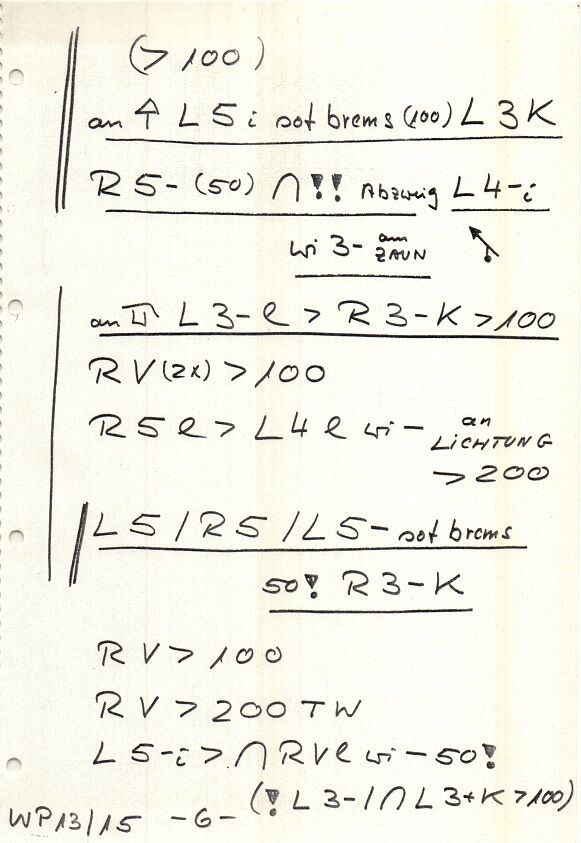 (> 100)
an ↑ L 5 i sof brems (100) L 3 K
R 5- (50) ∩ !! Abzweig L 4-i
wi 3- am ZAUN
an L 3-l > R 3-K > 100
R V (2x) > 100
R 5 l > L 4 l wi - an LICHTUNG
> 200
L 5 / R 5 / L 5- sof brems
50! R 3-K
R V > 100
R V > 200 TW
L 5-i > ∩ R V l wi - 50!
(! L 3- / ∩ L 3+K > 100)
WP 13/15 -6-